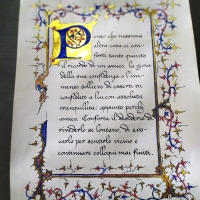 Penso che nessuna
altra cosa ci con-
forti tanto quanto
il ricordo di un amico, la gioia
della sua confidenza o l'im-
menso sollievo di esserti af-
fidato a lui con assoluta
tranquillità: appunto perché
amico. Conforta il desiderio di
rivederlo se lontano, di evo-
carlo per sentirlo vicino e
continuare colloqui mai finiti.